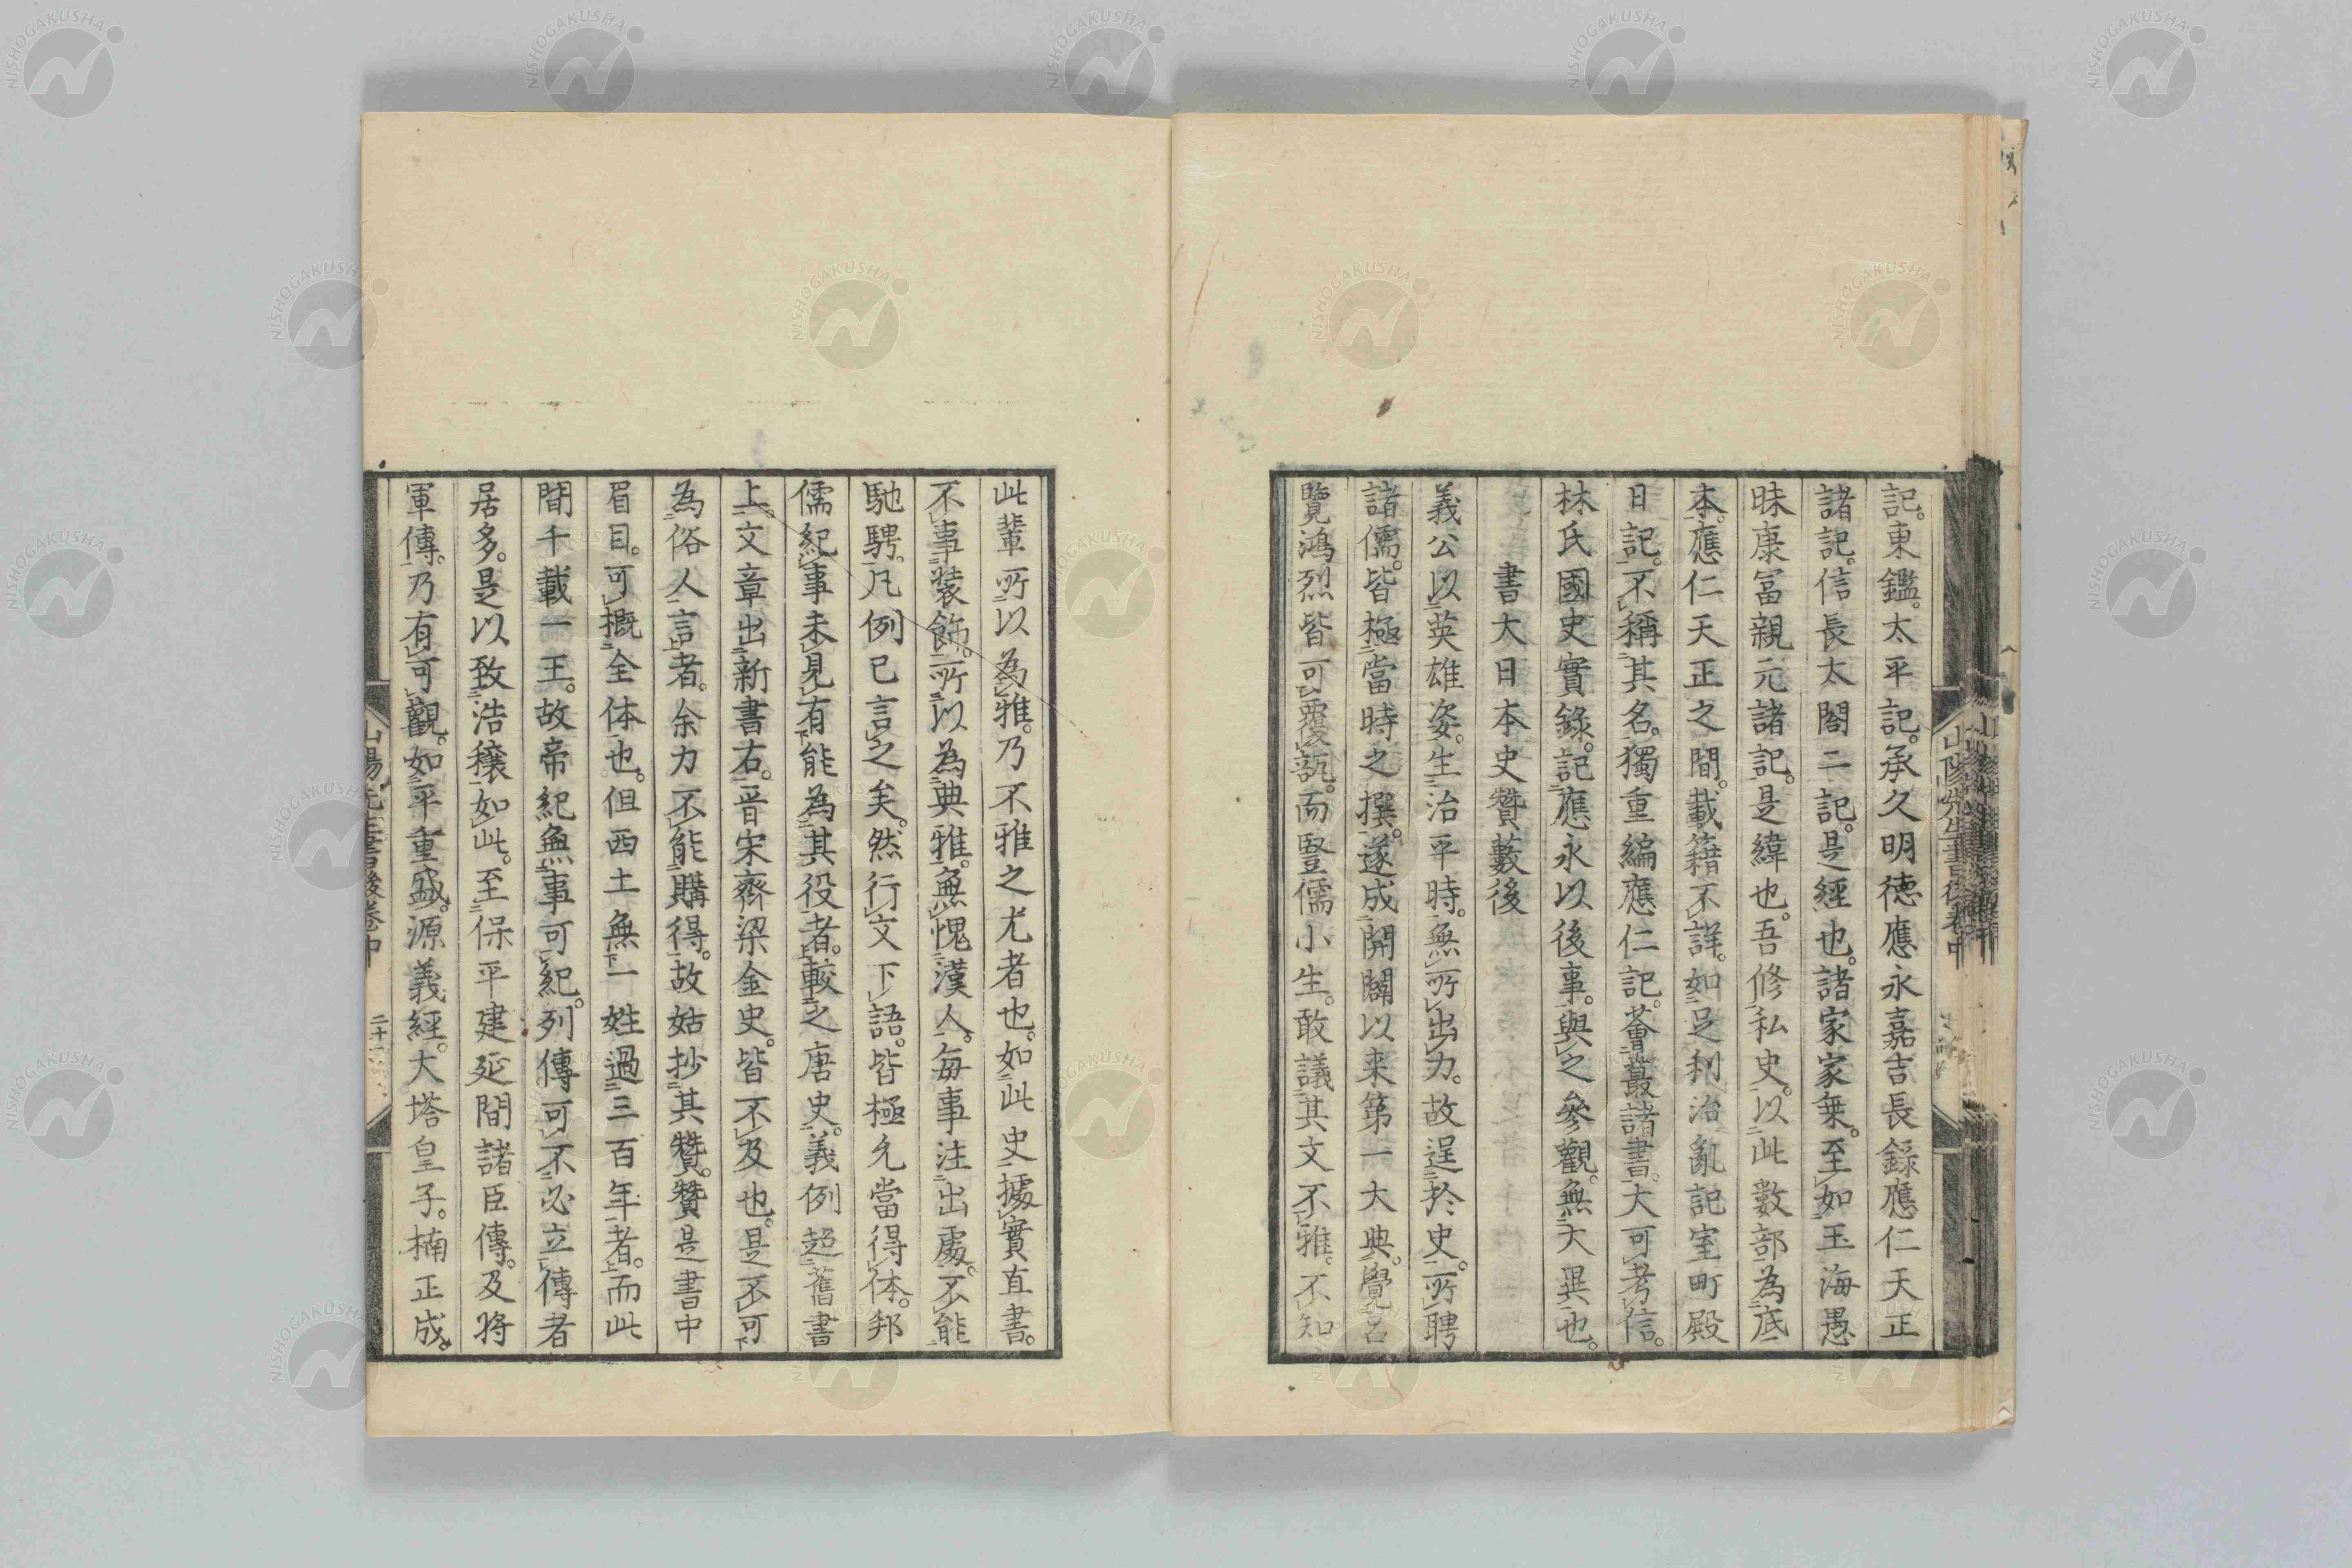 記。東鑑。太平記。承久明徳應永嘉吉長錄應仁天正
諸記。信長太閤二記。是經也。諸家家乗。至如玉海愚
昧康冨親元諸記。是緯也。吾修私史。以此數部為底
本。應仁天正之間。載籍不詳。如足利治亂記室町殿
日記。不稱其名。獨重編應仁記。薈蕞諸書。大可考信。
林氏國史實錄。記應永以後事。與之參觀。無大異也。
書大日本史贊藪後
義公以英雄姿。生治平時。無所出力。故逞於史。所聘
諸儒。皆極當時之撰。遂成開闢以来第一大典。覺
覽鴻烈皆可覆瓿。而豎儒小生。敢議其文不雅。不知
此輩所以為雅。乃不雅之尤者也。如此史據實直書。
不事裝飾。所以為典雅。無愧漢人。每事注出處。不能
馳騁。凡例已言之矣。然行文下語。皆極允當得体。邦
儒紀事未見有能為其役者。較之唐史。義例超舊書
上。文章出新書右。晋宋齊梁金史。皆不及也。是不可
為俗人言者。余力不能購得。故姑抄其贊。贊是書中
眉目。可概全体也。但西土無一姓過三百年者。而此
間千載一王。故帝紀無事可紀。列傳可不必立傳者
居多。是以致浩穰如此。至保平建延間諸臣傳。及将
軍傳。乃有可觀。如平重盛。源義經。大塔皇子。楠正成。
山陽先生書後卷中